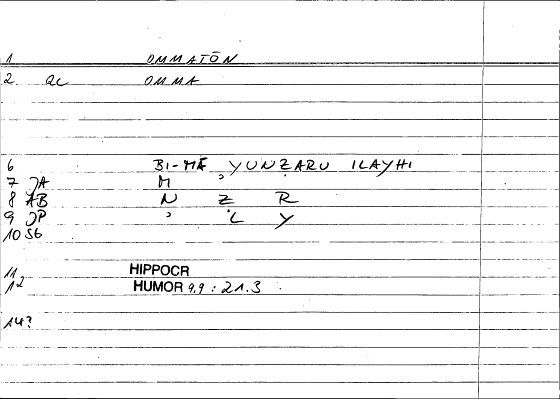 1 OMMATŌN
2 QC OMMA
6 BI-MĀ YUNẒARU ILAYHI
7 JA M
8 AB N Ẓ R
9 JP ʾ L Y
10 S6
11 HIPPOCR
12 HUMOR 9.9 : 21.3
14?